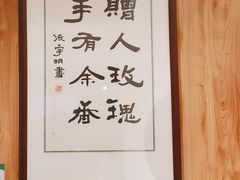 贈人玫瑰
手有余香
张宇明書